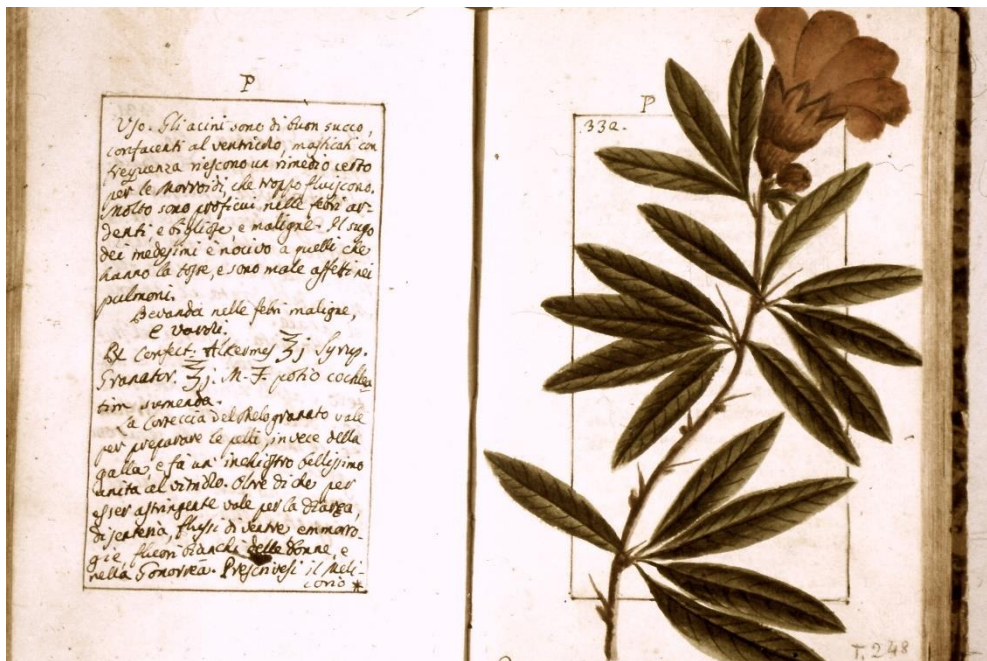 P
Uso. Gli acini sono di buon succo,
confacenti al ventricolo, masticati con
freguenza riescono un rimedio certo
per le Morroidi, che troppo fluiscono.
Molto sono proficui nelle febri ar-
denti e bigliose e maligne. Il sugo
dei medesimi è nocivo a quelli che
hanno la tosse, e sono male affetti nei
pulmoni.
Bevanda nelle febri maligne,
e varoli.
℞ Confect. Alkermes ℥j Syrup.
Granator. ℥j. M. F. potio cochlea
tim sumenda.
La Correccia del Melogranato vale
per preparare le pelli, invece della
galla, e fà un' inchiostro bellissimo
unita al vitriolo. Oltre di che per
esser astringente vale per la Diarea,
disenteria, flussi di ventre, emmaro-
gie fluori bianchi delle Donne, e
nella Gonorrea. Prescrivesi il Meli-
corio *
P
332.
T. 248